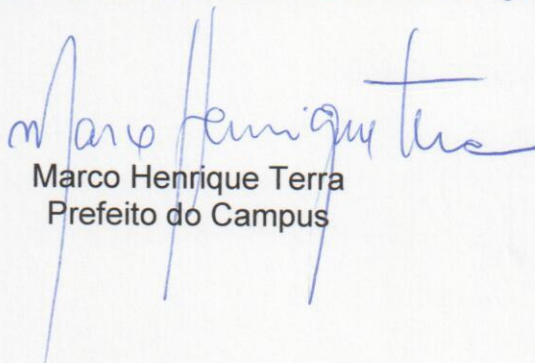 Marco Henrique Terra
Marco Henrique Terra
Prefeito do Campus